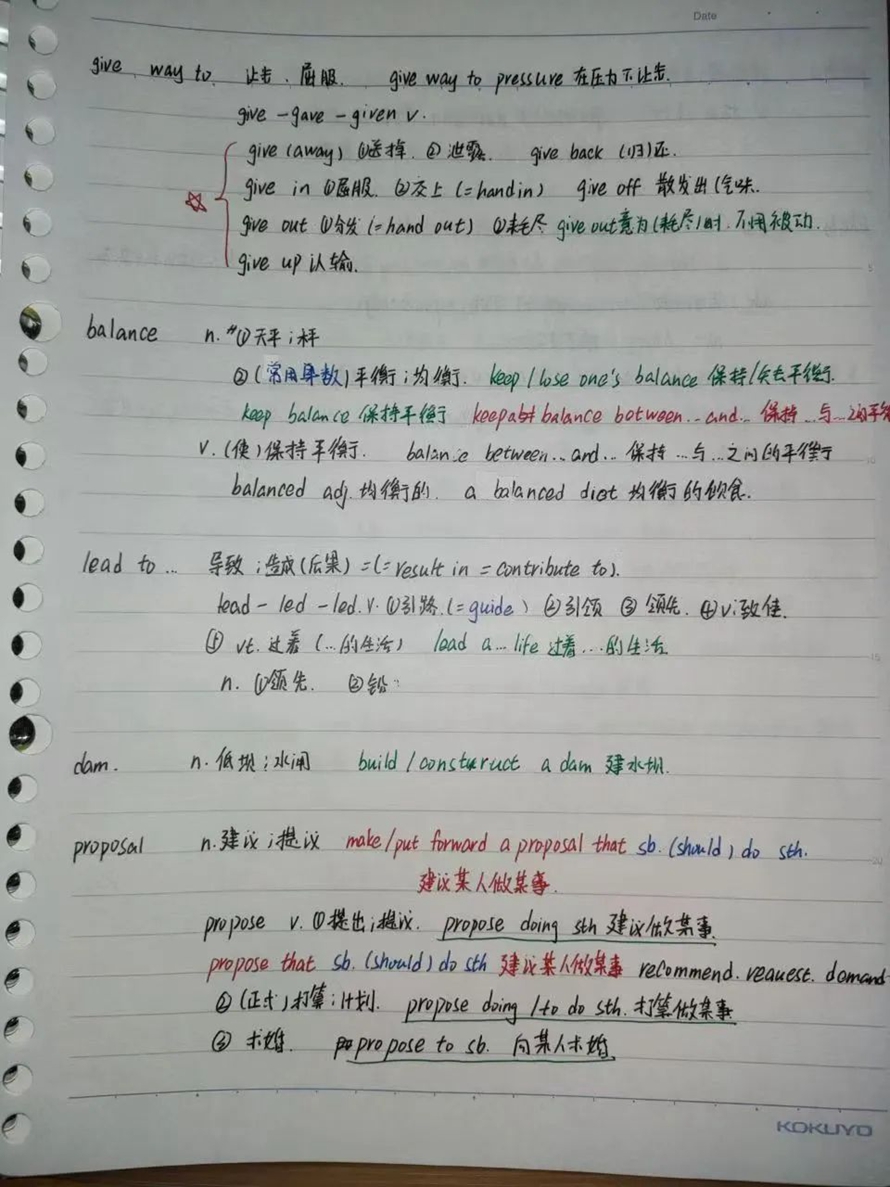 Date
give way to 让步、屈服. give way to pressure 在压力下让步.
give - gave - given v.
give (away) ①送掉. ②泄露. give back (归)还.
give in ①屈服. ②交上 (= hand in) give off 散发出(气味.
give out ①分发 (= hand out) ②耗尽 give out意为(耗尽)时, 不用被动.
give up 认输.
balance n. ①天平;秤
②(常用单数)平衡;均衡. keep / lose one's balance 保持/失去平衡.
keep balance 保持平衡 keep a balance between... and... 保持...与...之间平
v. (使)保持平衡. balance between... and... 保持...与...之间的平衡
balanced adj. 均衡的. a balanced diet 均衡的饮食.
lead to ... 导致;造成(后果) =(= result in = contribute to).
lead - led - led. v. ①引路.(= guide) ②引领 ③领先. ④vi致使.
⑤ vt. 过着 (...的生活) lead a... life 过着...的生活
n. ①领先. ②铅
dam. n. 低坝;水闸 build / construct a dam 建水坝.
proposal n. 建议;提议 make/put forward a proposal that sb. (should) do sth.
建议某人做某事.
propose v. ①提出;提议. propose doing sth 建议做某事.
propose that sb. (should) do sth 建议某人做某事 recommend. request. demand
②(正式)打算;计划. propose doing / to do sth. 打算做某事
③ 求婚. propose to sb. 向某人求婚.
KOKUYO